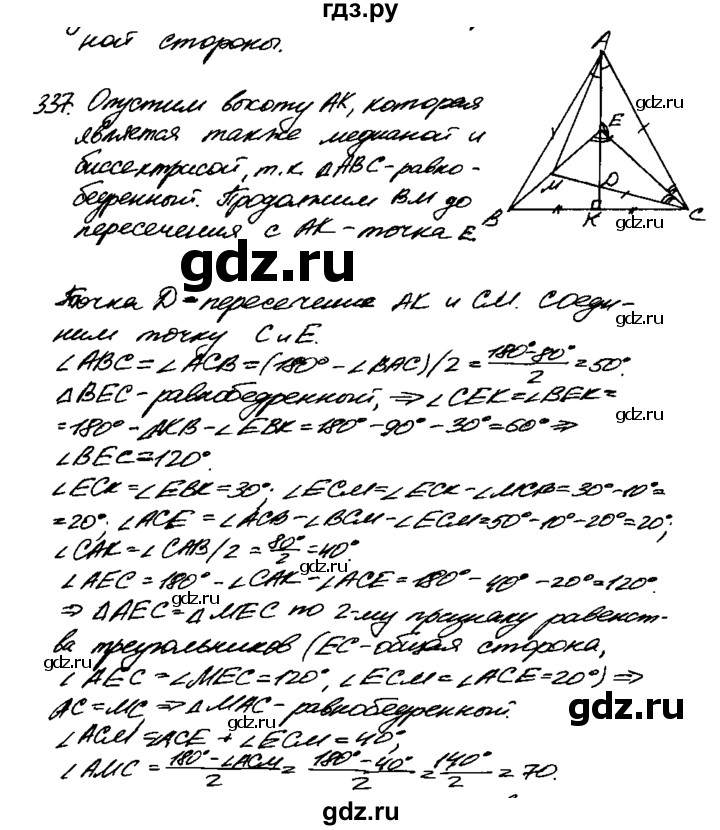 гдз.ру
ной стороны.
337. Опустим высоту AK, которая
является также медианой и
биссектрисой, т.к. △ABC-равно-
бедренный. Продолжим BM до
пересечения с AK-точка E.
A
E
M
D
B
K
C
gdz.ru
gdz.ru
gdz.ru
gdz.ru
Точка D-пересечение AK и CM. Соеди-
ним точку C и E.
∠ABC=∠ACB=(180°-∠BAC)/2=(180°-80°)/2=50°.
gdz.ru
△BEC-равнобедренный, ⇒∠CEK=∠BEK=
=180°-∠KB-∠EBK=180°-90°-30°=60°⇒
gdz.ru
∠BEC=120°.
∠ECK=∠EBK=30°; ∠ECM=∠ECK-∠MCB=30°-10°=
gdz.ru
=20°; ∠ACE=∠ACB-∠BCM-∠ECM=50°-10°-20°=20°;
gdz.ru
∠CAK=∠CAB/2=80°/2=40°.
gdz.ru
∠AEC=180°-∠CAK-∠ACE=180°-40°-20°=120°.
gdz.ru
⇒△AEC=△MEC по 2-му признаку равенст-
ва треугольников (EC-общая сторона,
gdz.ru
∠AEC=∠MEC=120°, ∠ECM=∠ACE=20°)⇒
AC=MC⇒△MAC-равнобедренный.
gdz.ru
gdz.ru
∠ACM=ACE+∠ECM=40°;
∠AMC=(180°-∠ACM)/2=(180°-40°)/2=140°/2=70.
gdz.ru
gdz.ru
gdz.ru